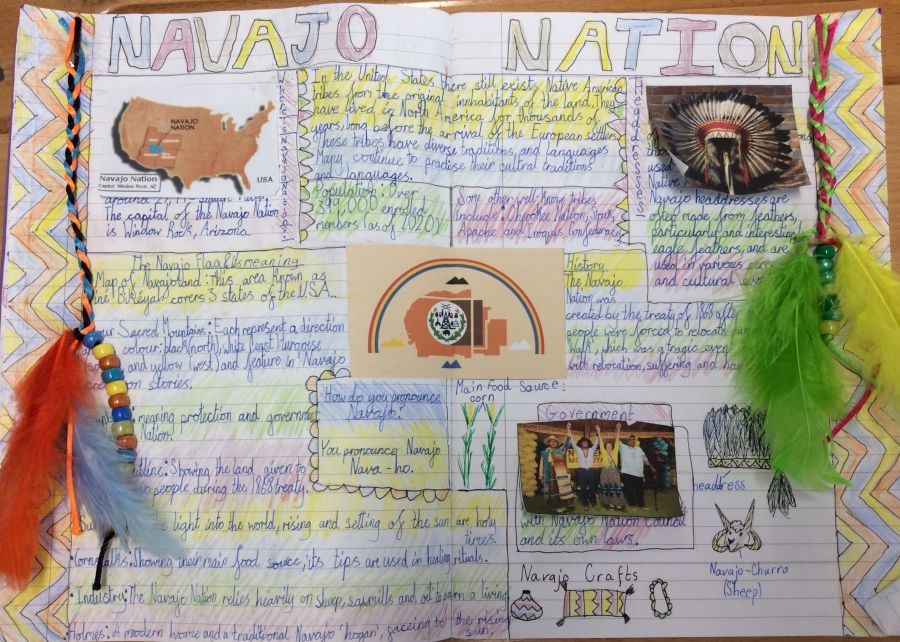 NAVAJO NATION
NAVAJO
NATION
Navajo Nation
Capitol Window Rock, AZ
USA
The capital of the Navajo Nation
is Window Rock, Arizona
In the United States there still exists Native America
tribes from the original innhabitants of the land. They
have lived in North America for thousands of
years, long before the arrival of the European settlers
These tribes have diverse traditions, and languages
Many continue to practise their cultural traditions
and languages.
Population: Over
399,000 enrolled
members (as of 2020)
Some other well-known tribes
include: Cherokee Nation, Sioux,
Apache and Iroquis Confederacy
Navajo headdresses are
often made from feathers,
particularly and interesting
eagle feathers, and are
used in various
and cultural
The Navajo Flag & its meaning
Map of Navajoland: This area known as
covers 3 states of the U.S.A.
Sacred Mountains: Each represent a direction
colour: black (north), white (east) turquoise
and yellow (west) and feature in Navajo
stories.
meaning protection and
Nation.
Showing the land given to
people during the 1868 treaty.
light into the world, rising and setting of the sun are holy
times.
Cornstalks: Showing their main food source, its tips are used in healing rituals.
• Industry: The Navajo Nation relies heavily on sheep, sawmills and oil to earn a living
• Homes: A modern home and a traditional Navajo 'hogan', faceing to the rising
sun.
History
The Navajo
Nation was
created by the treaty of 1868 after
people were forced to relocate
walk', which was a tragic
with relocation, suffering, and
How do you pronounce
Navajo?
You pronounce Navajo
Nava-ho.
Main Food Sauce:
corn
Government
with Navajo Nation Council
and its own laws.
headdress
Navajo-Churro
(Sheep)
Navajo Crafts